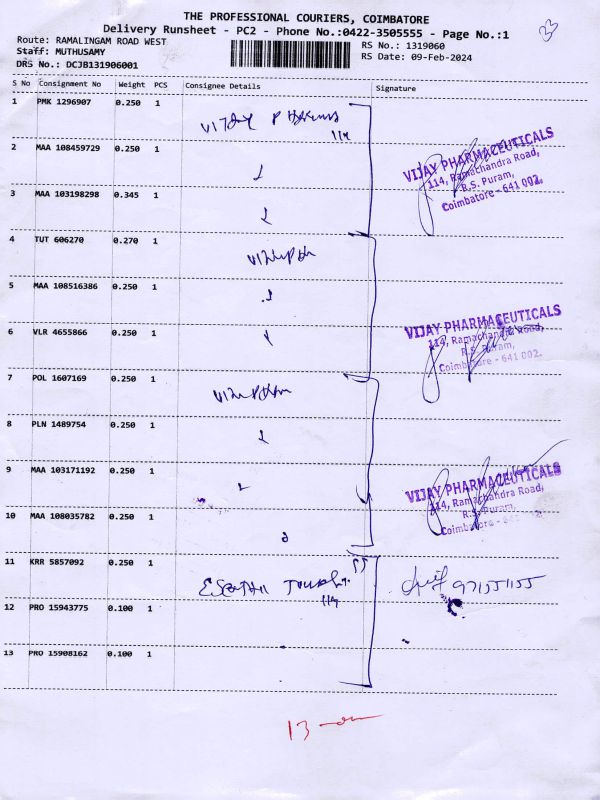 THE PROFESSIONAL COURIERS, COIMBATORE
Delivery Runsheet - PC2 - Phone No.:0422-3505555 - Page No.:1
Route: RAMALINGAM ROAD WEST
Staff: MUTHUSAMY
DRS No.: DCJB131906001
RS No.: 1319060
RS Date: 09-Feb-2024
S No Consignment No Weight PCS Consignee Details Signature
1 PMK 1296907 0.250 1
2 MAA 108459729 0.250 1
VIJAY PHARMACEUTICALS
114, Ramachandra Road,
R.S. Puram,
Coimbatore - 641 002.
3 MAA 103198298 0.345 1
4 TUT 606270 0.270 1
5 MAA 108516386 0.250 1
VIJAY PHARMACEUTICALS
114, Ramachandra Road,
R.S. Puram,
Coimbatore - 641 002.
6 VLR 4655866 0.250 1
7 POL 1607169 0.250 1
8 PLN 1489754 0.250 1
9 MAA 103171192 0.250 1
VIJAY PHARMACEUTICALS
114, Ramachandra Road,
R.S. Puram,
Coimbatore - 2
10 MAA 108035782 0.250 1
11 KRR 5857092 0.250 1
12 PRO 15943775 0.100 1
114
13 PRO 15908162 0.100 1
13